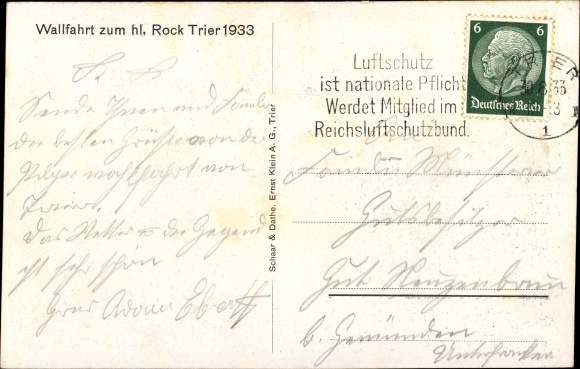 Wallfahrt zum hl. Rock Trier 1933
Luftschutz
ist nationale Pflicht
Werdet Mitglied im
Reichsluftschutzbund.
6 6
Deutsches Reich
1
Schaar & Dathe. Ernst Klein A. G., Trier
Sende Ihnen und Familie
die besten Grüße von der
Pilgerwahlfahrt von
Trier.
Das Wetter u die Gegend
ist sehr schön
Gruß Adam
Familie
Gutsbesitzer
Gut
b. Gemünden
Unterfranken